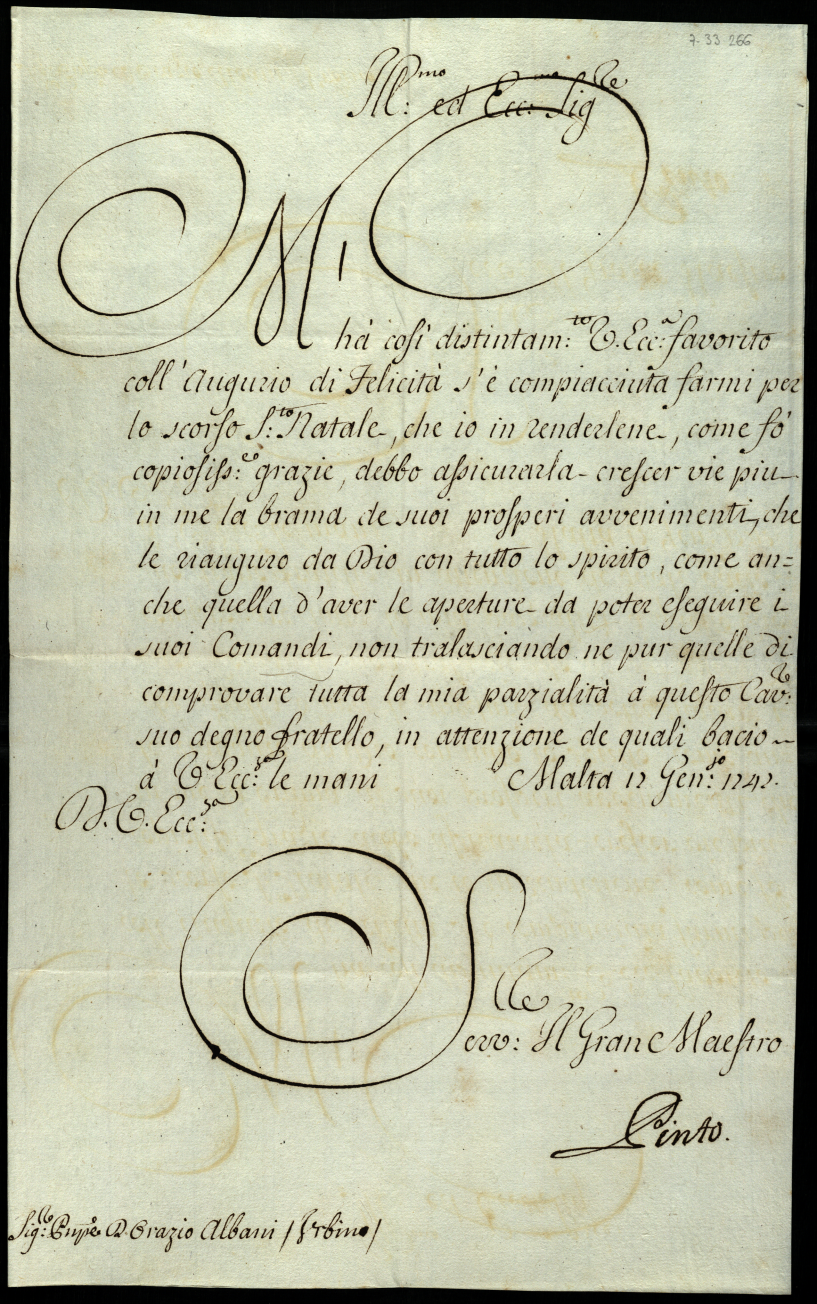 7-33 266
Ill:mo ed Ecc:mo Sigre
Mi
hà così distintam:te V. Ecc:a favorito
coll'Augurio di Felicità s'è compiacciuta farmi per
lo scorso S:to Natale, che io in renderlene, come fò
copiosiss:e grazie, debbo assicurarla crescer vie più
in me la brama de suoi prosperi avvenimenti, che
le riauguro da Dio con tutto lo spirito, come an=
che quella d'aver le aperture da poter eseguire i
suoi Comandi, non tralasciando ne pur quelle di
comprovare tutta la mia parzialità à questo Cav:re
suo degno fratello, in attenzione de quali bacio
à V. Ecc:za le mani Malta 12 Gen:ro 1742.
D. V. Ecc:za
Serv:re Il Gran Maestro
Pinto.
Sig:re Pnpe D. Orazio Albani / Urbino /